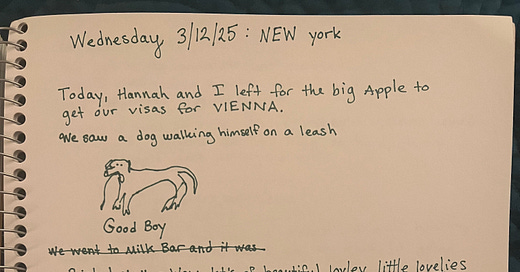 Wednesday, 3/12/25: NEW york
Today, Hannah and I left for the big Apple to
get our visas for VIENNA.
We saw a dog walking himself on a leash
Good Boy
We went to Milk Bar and it was
of beautiful lovley little lovelies